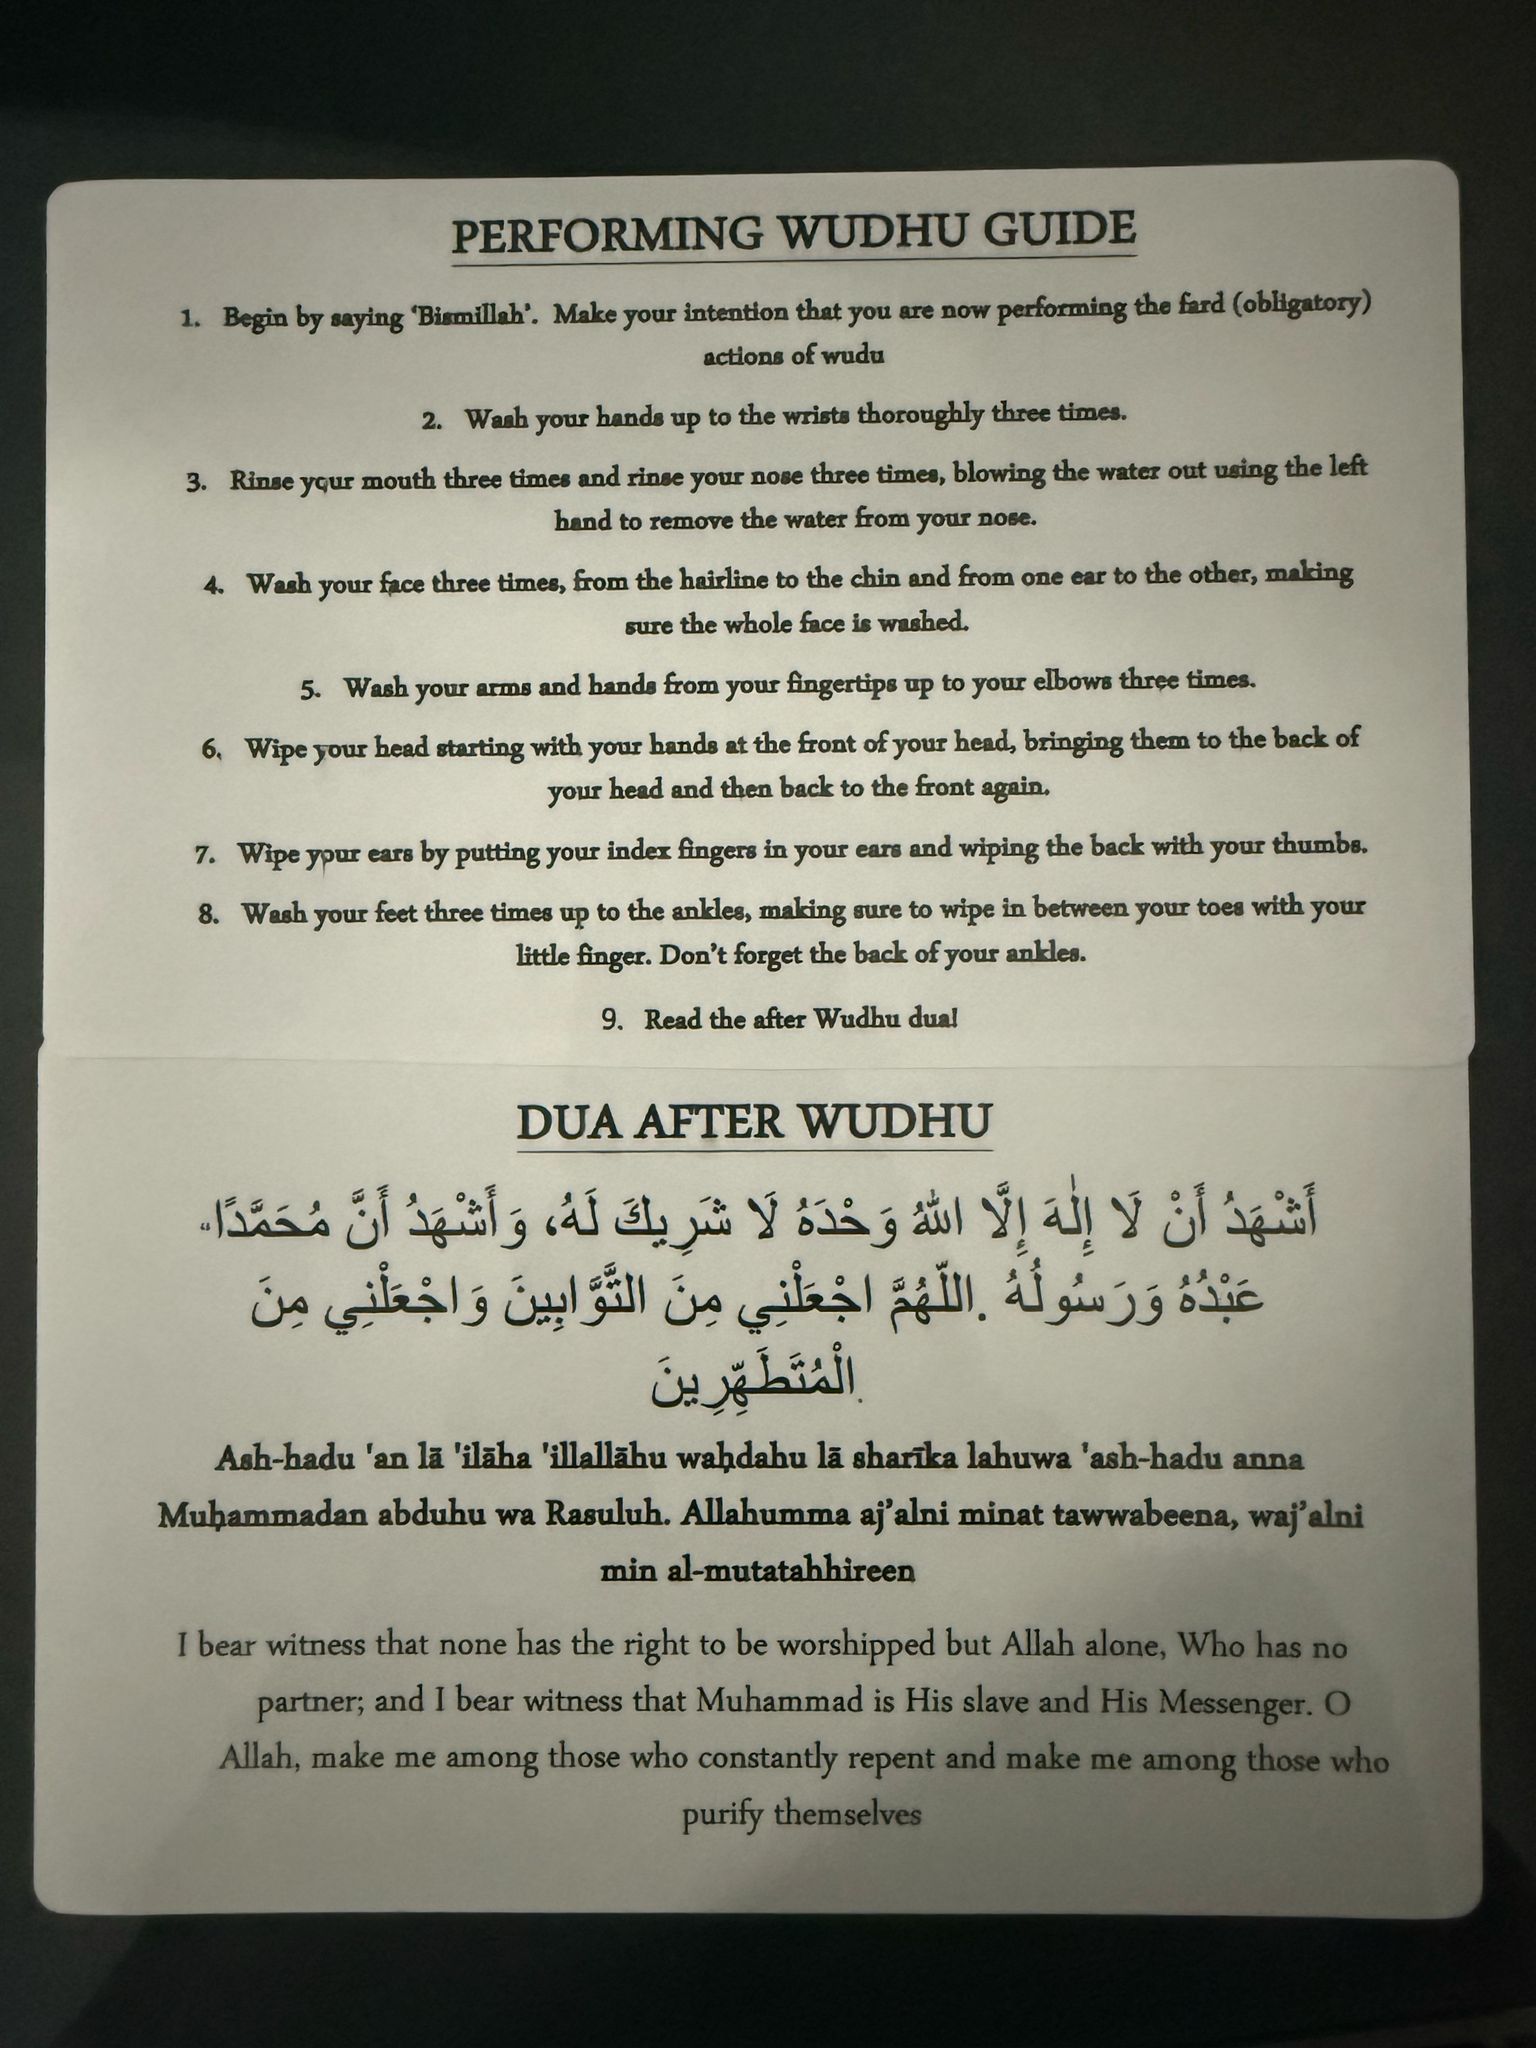 PERFORMING WUDHU GUIDE
1. Begin by saying ‘Bismillah’. Make your intention that you are now performing the fard (obligatory)
actions of wudu
2. Wash your hands up to the wrists thoroughly three times.
3. Rinse your mouth three times and rinse your nose three times, blowing the water out using the left
hand to remove the water from your nose.
4. Wash your face three times, from the hairline to the chin and from one ear to the other, making
sure the whole face is washed.
5. Wash your arms and hands from your fingertips up to your elbows three times.
6. Wipe your head starting with your hands at the front of your head, bringing them to the back of
your head and then back to the front again.
7. Wipe your ears by putting your index fingers in your ears and wiping the back with your thumbs.
8. Wash your feet three times up to the ankles, making sure to wipe in between your toes with your
little finger. Don’t forget the back of your ankles.
9. Read the after Wudhu dua!
DUA AFTER WUDHU
أَشْهَدُ أَنْ لَا إِلٰهَ إِلَّا اللهُ وَحْدَهُ لَا شَرِيكَ لَهُ، وَأَشْهَدُ أَنَّ مُحَمَّدًا“
عَبْدُهُ وَرَسُولُهُ .اللّهُمَّ اجْعَلْنِي مِنَ التَّوَّابِينَ وَاجْعَلْنِي مِنَ
.الْمُتَطَهِّرِينَ
Ash-hadu 'an lā 'ilāha 'illallāhu waḥdahu lā sharīka lahuwa 'ash-hadu anna
Muḥammadan abduhu wa Rasuluh. Allahumma aj’alni minat tawwabeena, waj’alni
min al-mutatahhireen
I bear witness that none has the right to be worshipped but Allah alone, Who has no
partner; and I bear witness that Muhammad is His slave and His Messenger. O
Allah, make me among those who constantly repent and make me among those who
purify themselves